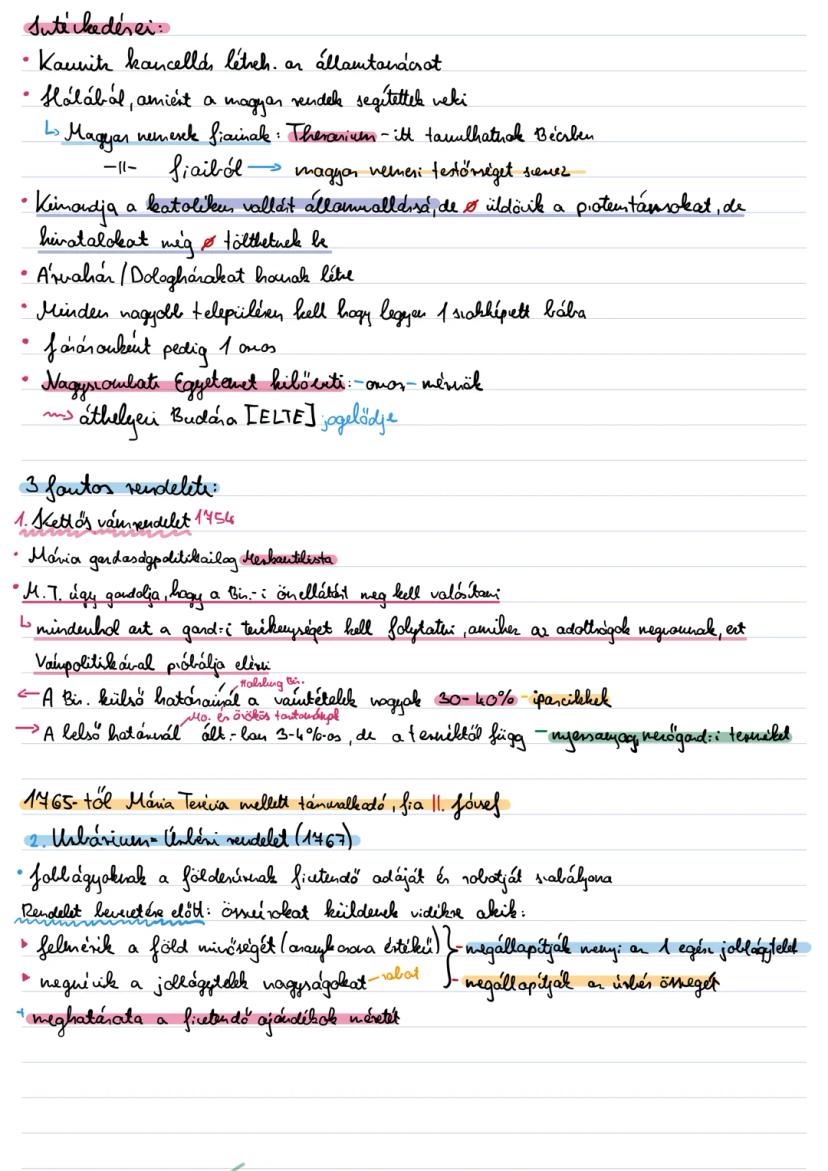 Intézkedései:
• Kaunitz kancellár létreh. az államtanácsot
• Hálából, amiért a magyar rendek segítettek neki
↳ Magyar nemesek fiainak: Therezium - itt tanulhatnak Bécsben
-||- fiaiból → magyar nemesi testőrséget szervez
• Kimondja a katolikus vallást államvallássá, de ∅ üldözik a protestánsokat, de
hivatalokat még ∅ tölthetnek be
• Árvaház / Dologházakat hoznak létre
• Minden nagyobb településen kell hogy legyen 1 szakképzett bába
• Járásonként pedig 1 orvos
• Nagyszombati Egyetemet kibővíti: - orvos - mérnök
⇝ áthelyezi Budára [ELTE] jogelődje
3 fontos rendelete:
1. Kettős vámrendelet 1754
• Mária gazdaságpolitikailag Merkantilista
• M.T. úgy gondolja, hogy a Bir.-i önellátást meg kell valósítani
↳ mindenhol azt a gazd-i tevékenységet kell folytatni, amihez az adottságok megvannak, ezt
Vámpolitikával próbálja elérni
Habsburg Bir.
← A Bir. külső határainál a vámtételek nagyok 30-40% - iparcikkek
Mo. és örökös tartományok
→ A belső határnál ált.-ban 3-4%-os, de a terméktől függ - nyersanyag, mezőgazd-i termékek
1765-től Mária Terézia mellett társuralkodó, fia II. József
2. Urbárium = Úrbéri rendelet (1767)
• Jobbágyoknak a földesúrnak fizetendő adáját és robotját szabályozza
Rendelet bevezetése előtt: összeírókat küldenek vidékre akik:
▸ felmérik a föld minőségét (aranykorona értékű) } - megállapítják mennyi az 1 egész jobbágytelek
▸ megnézik a jobbágytelek nagyságokat - robot - megállapítják az úrbér összegét
+ meghatározta a fizetendő ajándékok méretét